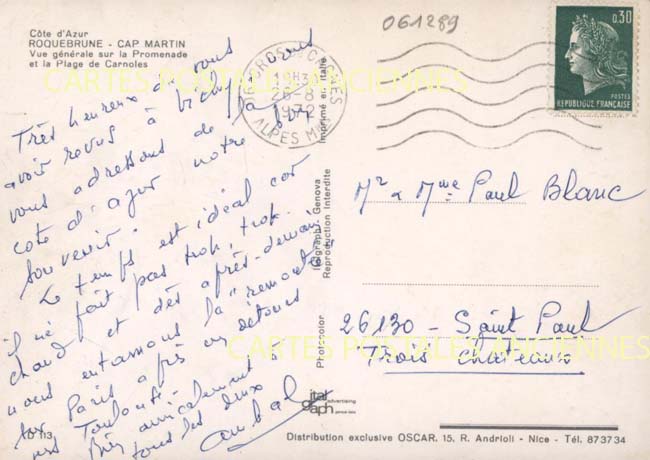 Côte d'Azur
ROQUEBRUNE - CAP MARTIN
Vue générale sur la Promenade
et la Plage de Carnoles
061289
0,30
POSTES
REPUBLIQUE FRANÇAISE
CROS DE CAGNES
26-8
1972
ALPES MMES
CARTES POSTALES ANCIENNES
Très heureux de vous
avoir revus à Vichy, nous
vous adressons de
cote d'azur notre bon
souvenir.
Le temps est idéal car
il ne fait pas trop, trop
chaud et dès après-demain
nous entamons la "remontée"
sur Paris après un détour
Bien amicalement à
tous les deux
Imprimé en Italie
Itograph/Genova
Reproduction Interdite
Photocolor
Mr & Mme Paul Blanc
26130 - Saint Paul
Trois Chateaux
CARTES POSTALES ANCIENNES
itar
graph
advertising
ID 113
Distribution exclusive OSCAR. 15, R. Andrioli - Nice - Tél. 873734